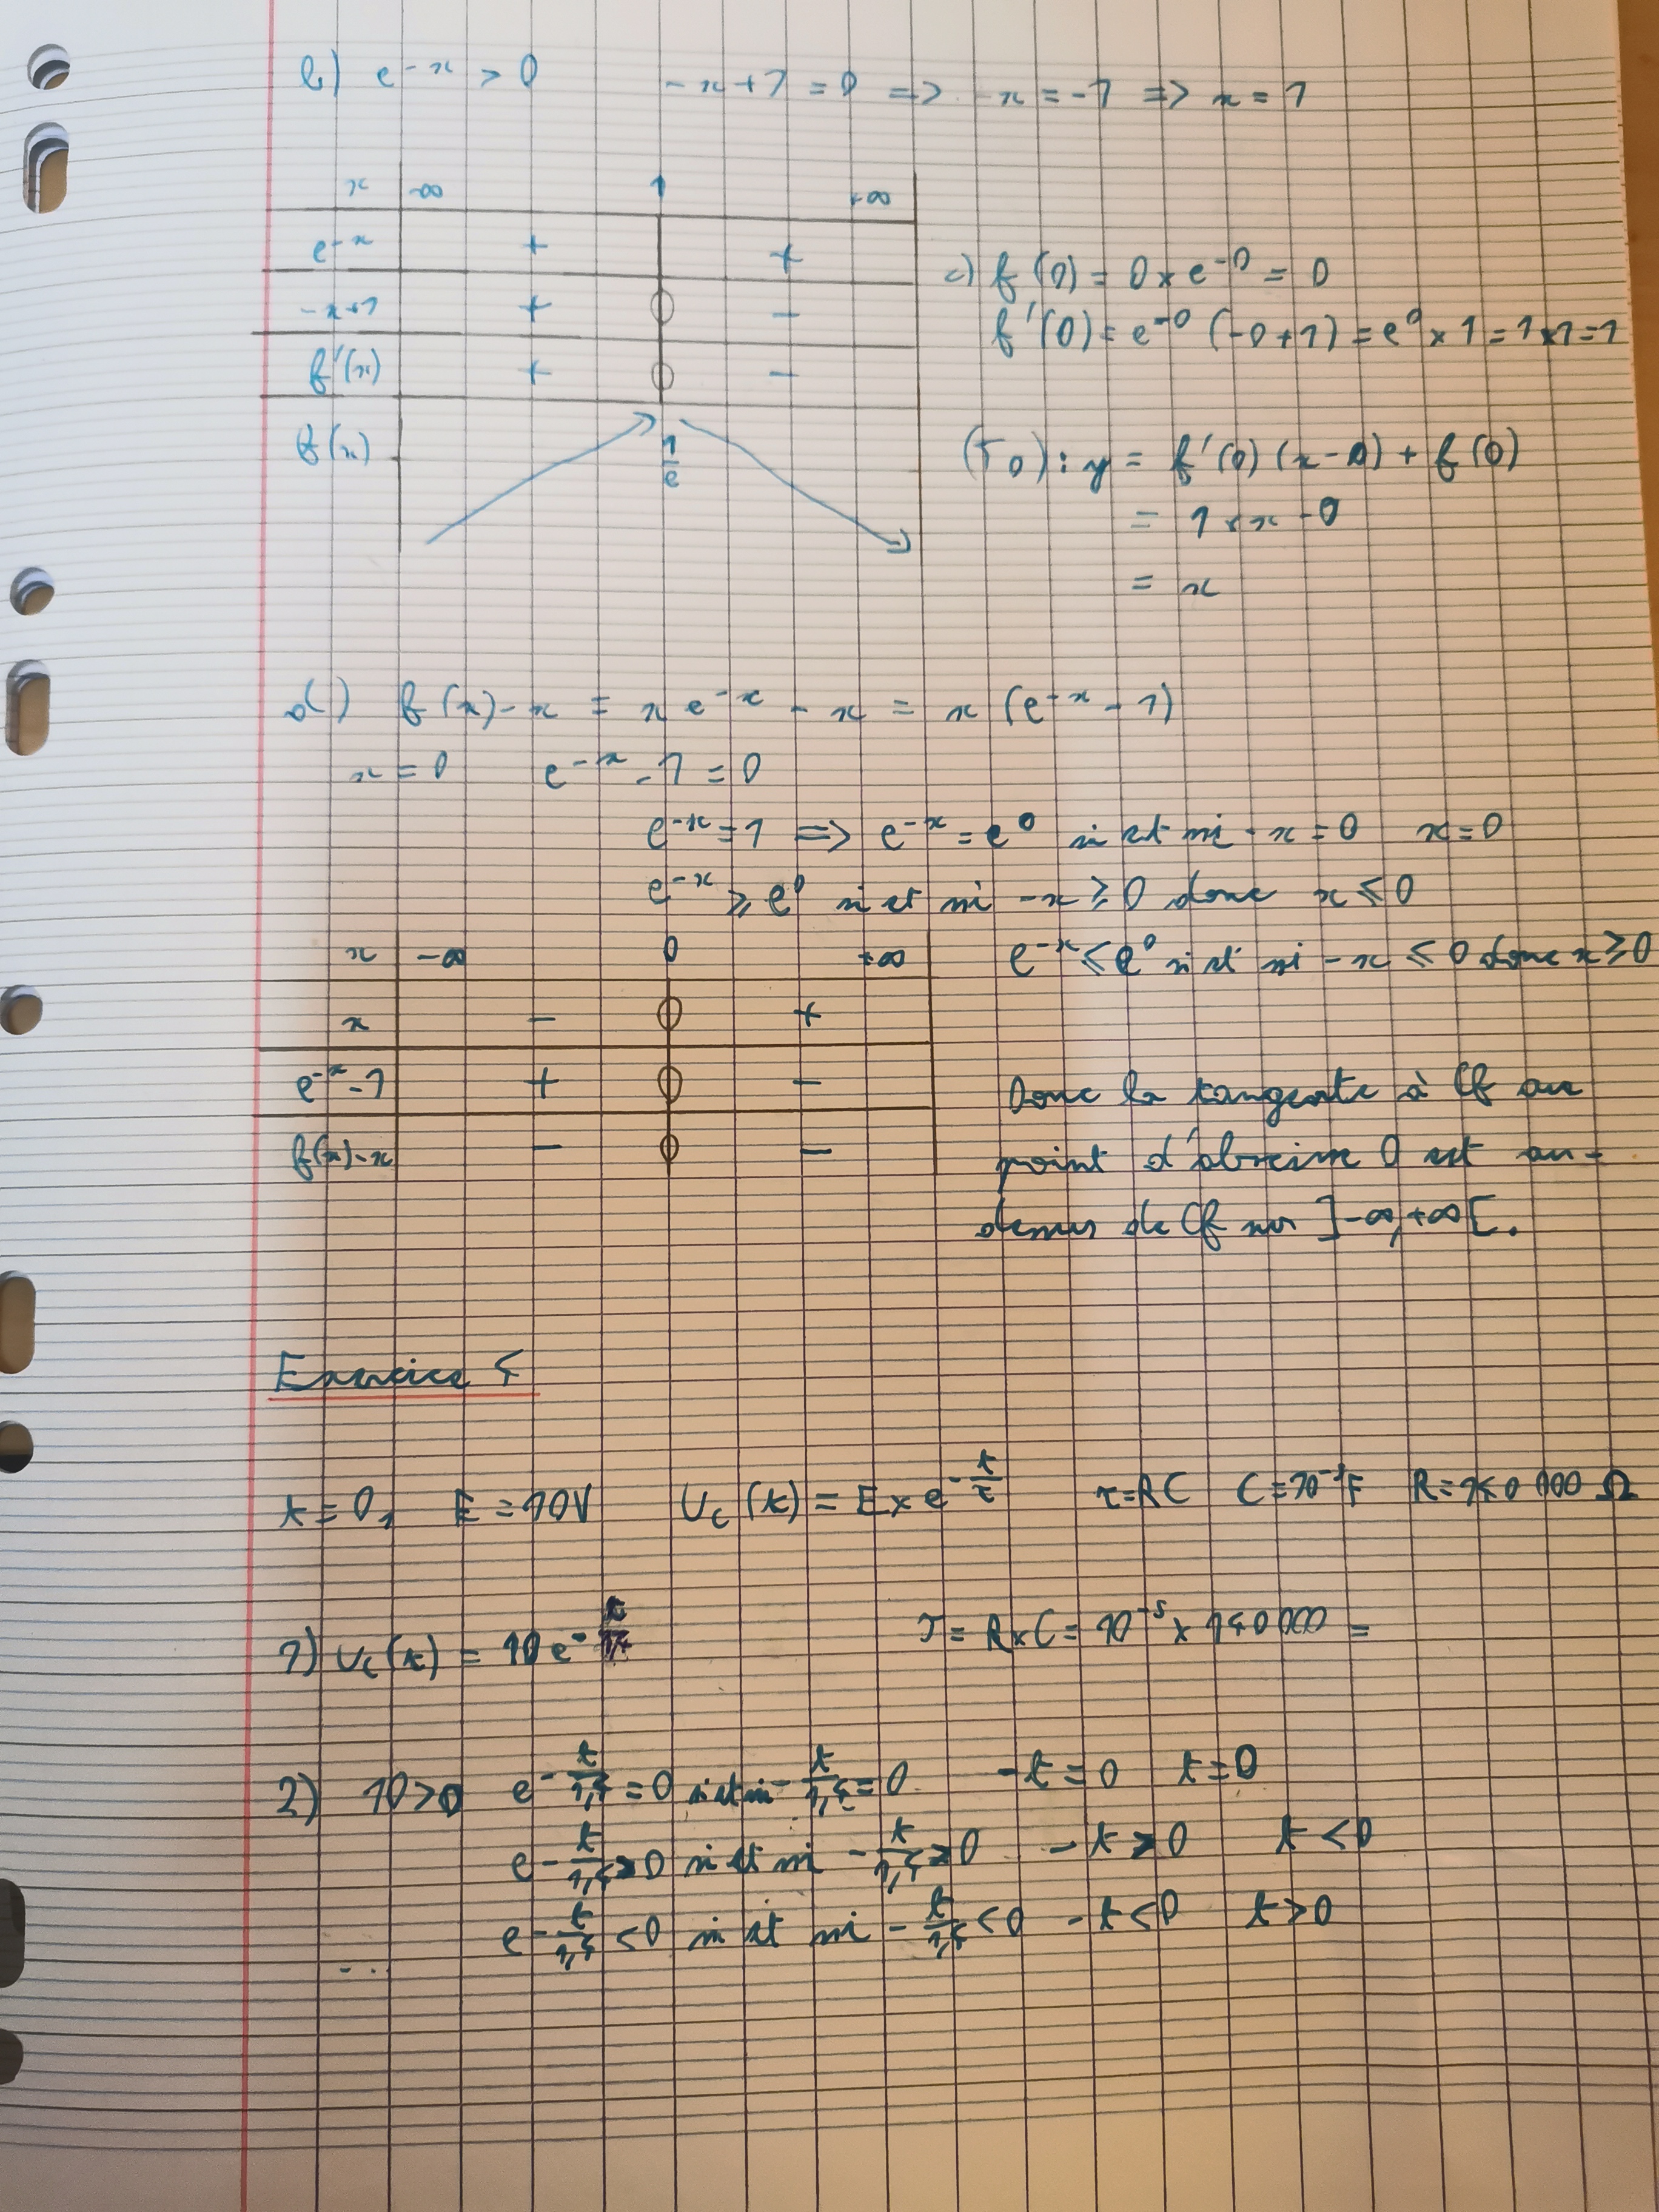 b) e^{-x} > 0   -x+1 = 0 => -x = -1 => x = 1
x   -∞   1   +∞
e^{-x}   +   +
-x+1   +   0   -
f'(x)   +   0   -
f(x)   1/e
c) f(0) = 0 x e^{-0} = 0
f'(0) = e^{-0} (-0+1) = e^0 x 1 = 1x1=1
(T_0) : y = f'(0) (x-0) + f(0)
= 1 x x - 0
= x
d) f(x) - x = x e^{-x} - x = x (e^{-x} - 1)
x = 0   e^{-x} - 1 = 0
e^{-x} = 1 => e^{-x} = e^0 si et ssi -x = 0   x = 0
e^{-x} ⩾ e^0 si et ssi -x ⩾ 0 donc x ⩽ 0
e^{-x} ⩽ e^0 si et ssi -x ⩽ 0 donc x ⩾ 0
x   -∞   0   +∞
x   -   0   +
e^{-x}-1   +   0   -
f(x)-x   -   0   -
Donc la tangente à Cf au
point d'abscisse 0 est au-
dessus de Cf sur ]-∞,+∞[.
Exercice 5
t = 0,   E = 10V   U_c (t) = E x e^{-t/τ}   τ=RC   R=150 000 Ω
1) U_c(t) = 10 e^-
τ = R x C = 10^{-5} x 150 000 =
2) 10>0   e^{-t/1,5} = 0 si et ssi -t/1,5 = 0   -t = 0   t = 0
e^{-t/1,5} > 0 si et ssi -t/1,5 > 0   -t > 0   t < 0
e^{-t/1,5} < 0 si et ssi -t/1,5 < 0   -t < 0   t > 0
...